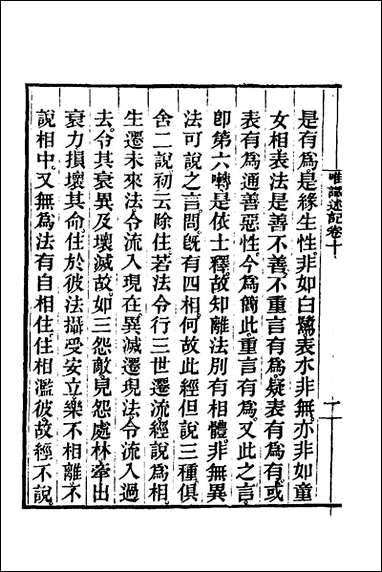 唯識述記卷十
是有為是緣生性非如白鷺表水非無亦非如童
女相表法是善不善不重言有為疑表有為有或
表有為通善惡性今為簡此重言有為又此之言
卽第六囀是依士釋故知離法別有相體非無異
法可說之言問既有四相何故此經但說三種俱
舍二說初云除住若法令行三世遷流經說為相
生遷未來法令流入現在異滅遷現法令流入過
去令其衰異及壞滅故如三怨敵見怨處林牽出
衰力損壞其命住於彼法攝受安立樂不相離不
說相中又無為法有自相住住相濫彼故經不說